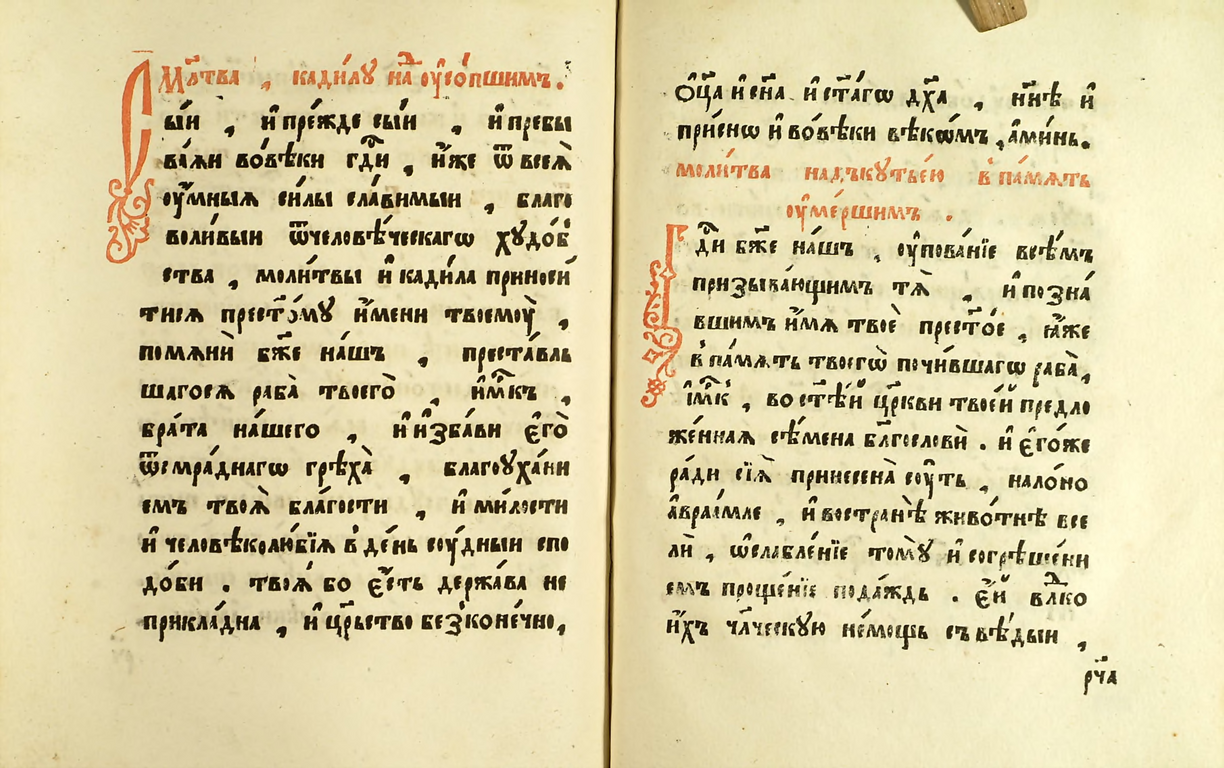 Мл҃тва , кади́лу на̑ оу҆со́пшимъ.
Сы́и , и҆ пре́жде сы́и , и҆ пребы
ва́ѧи во́вѣки гд҃и , и҆́же ѿ всеѧ̀
оу҆́мныѧ си́лы сла́вимыи , благо
воли́выи ѿчеловѣ́ческагѡ худо́б
ства , моли́твы и҆ кади́ла приноси́
тисѧ прест҃о́му и҆́мени твоемꙋ̀ ,
помѧнѝ бж҃е на́шъ , преста́вль
шагосѧ раба̀ твоего̀ , и҆м҃къ ,
бра́та на́шего , и҆ и҆зба́ви є҆го̀
ѿсмра́днагѡ грѣха̀ , благоуха́ни
емъ твоѧ̀ бла́гости , и҆ ми́лости
и҆ человѣколю́бїѧ в де́нь соу́дныи спо
до́би . твоѧ́ бо є҆́сть держа́ва не
прикла́дна , и҆ цр҃ьство без̾коне́чно,
ѻ҆ц҃а и҆ сн҃а и҆ ст҃а́гѡ дх҃а , нн҃ѣ и҆
при́снѡ и҆ во́вѣки вѣкѡ́мъ , а҆ми́нь.
моли́тва над̾кутье́ю в па́мѧть
оу҆ме́ршимъ .
Гд҃и бж҃е на́шъ , оу҆пова́нїе всѣ́мъ
призыва́ющимъ тѧ̀ , и҆ позна́
вшимъ и҆́мѧ твоѐ прест҃о́е , ꙗ҆́же
в па́мѧть твоегѡ̀ почи́вшагѡ раба̀,
и҆м҃къ , во ст҃ѣ́й цр҃кви твое́й предло
же́ннаѧ сѣ́мена бл҃гословѝ . и҆ є҆гѡ́же
ра́ди сїѧ̀ принесена̀ соу́ть , нало́но
а҆враа́мле , и҆ востра́нѣ живо́тнѣ все
лѝ , ѡ҆слабле́нїе томꙋ̀ и҆ согрѣше́ни
емъ проще́нїе пода́ждь . є҆́й влⷣко
и҆́хъ чл҃ческую не́мощь съвѣ́дыи ,
рч҃а